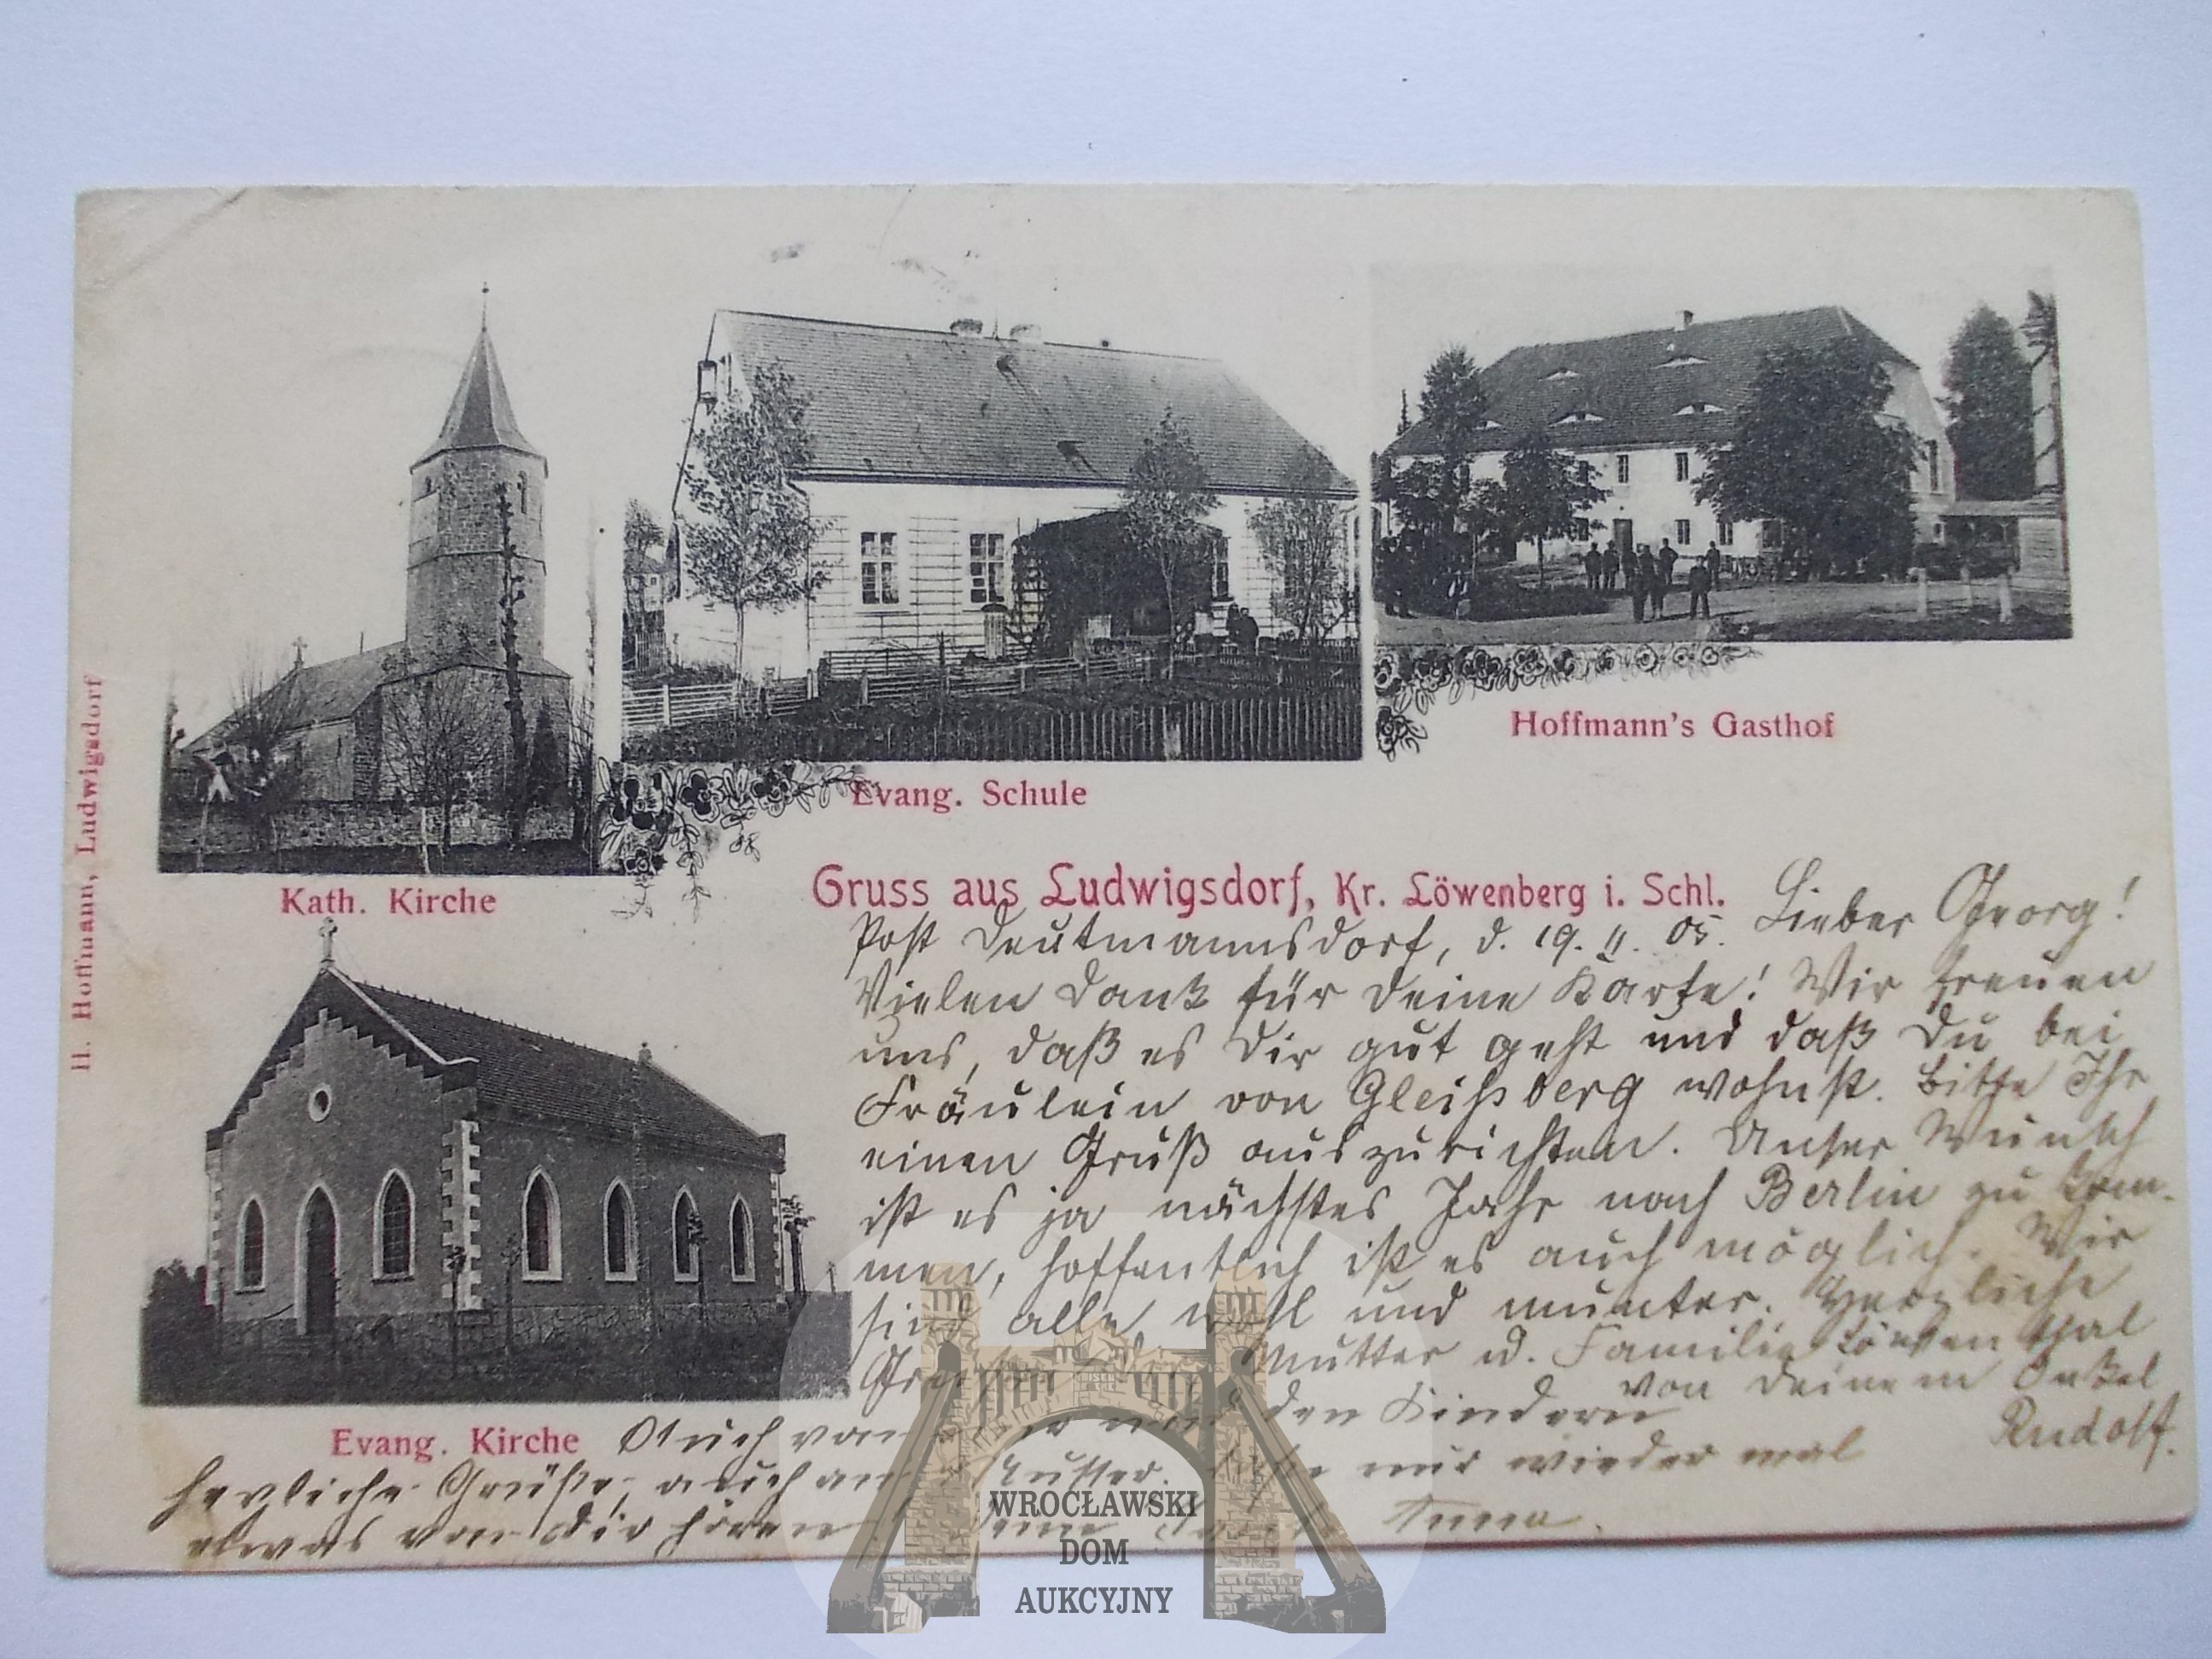 Kath. Kirche
Evang. Schule
Hoffmann's Gasthof
H. Hoffmann, Ludwigsdorf
Gruss aus Ludwigsdorf, Kr. Löwenberg i. Schl.
Post Deutmannsdorf, d. 19. II. 05. Lieber Georg!
Vielen Dank für Deine Karte! Wir freuen
uns, daß es Dir gut geht und daß Du bei
Fräulein von Gleißberg wohnst. Bitte Ihr
einen Gruß auszurichten. Unser Wunsch
ist es ja nächstes Jahr nach Berlin zu kom-
men, hoffentlich ist es auch möglich. Wir
sind alle wohl und munter. Herzliche
Grüße Mutter u. Familie
von Deinem Onkel
Rudolf.
Evang. Kirche
Auch von und den Kindern
herzliche Grüße, auch an Mutter. nur wieder mal
etwas von Dir hören. Deine Tante Anna.
WROCŁAWSKI
DOM
AUKCYJNY